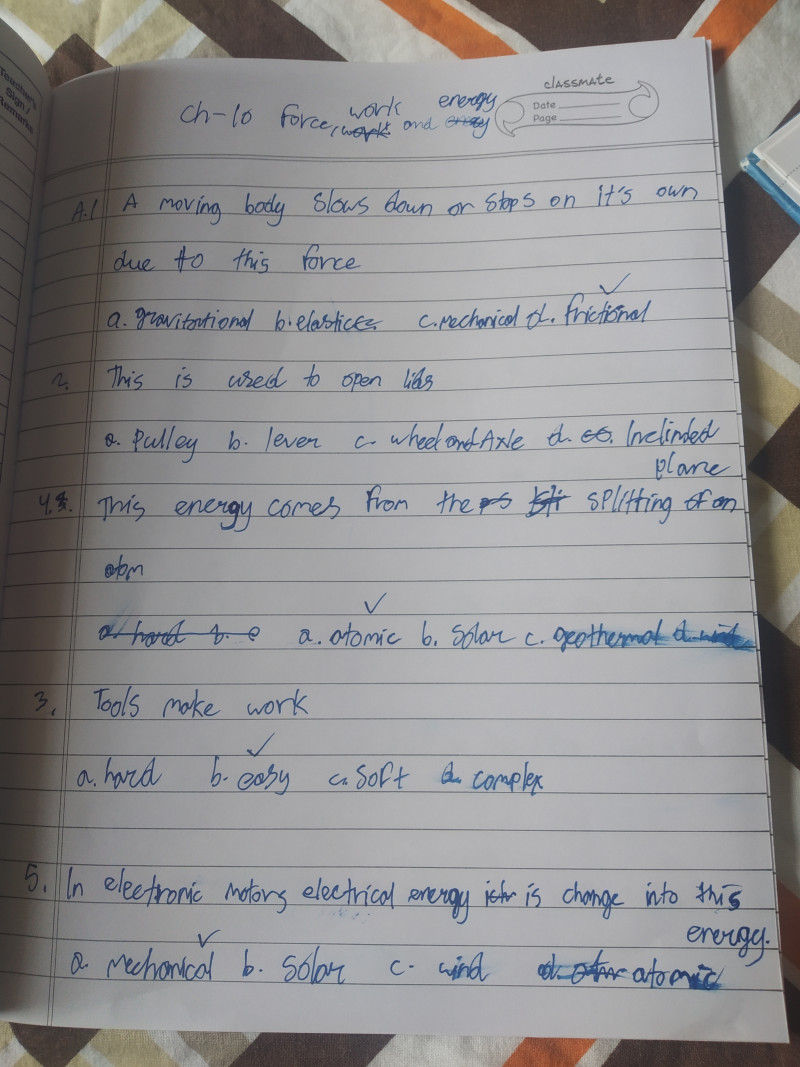 Teacher's
Sign /
Remarks
classmate
Date
Page
Ch-10 force, work and energy
A.1 A moving body slows down or stops on it's own
due to this force
a. gravitational b. elastic c. Mechanical d. frictional ✓
2. This is used to open lids
a. Pulley b. lever c. wheel and Axle d. Inclinded
plane
4. This energy comes from the splitting of an
atom
a. atomic ✓ b. Solar c. geothermal d. wind
3. Tools make work
a. hard b. easy ✓ c. soft d. complex
5. In electronic motors electrical energy is change into this
energy.
a. Mechanical ✓ b. Solar c. wind d. atomic